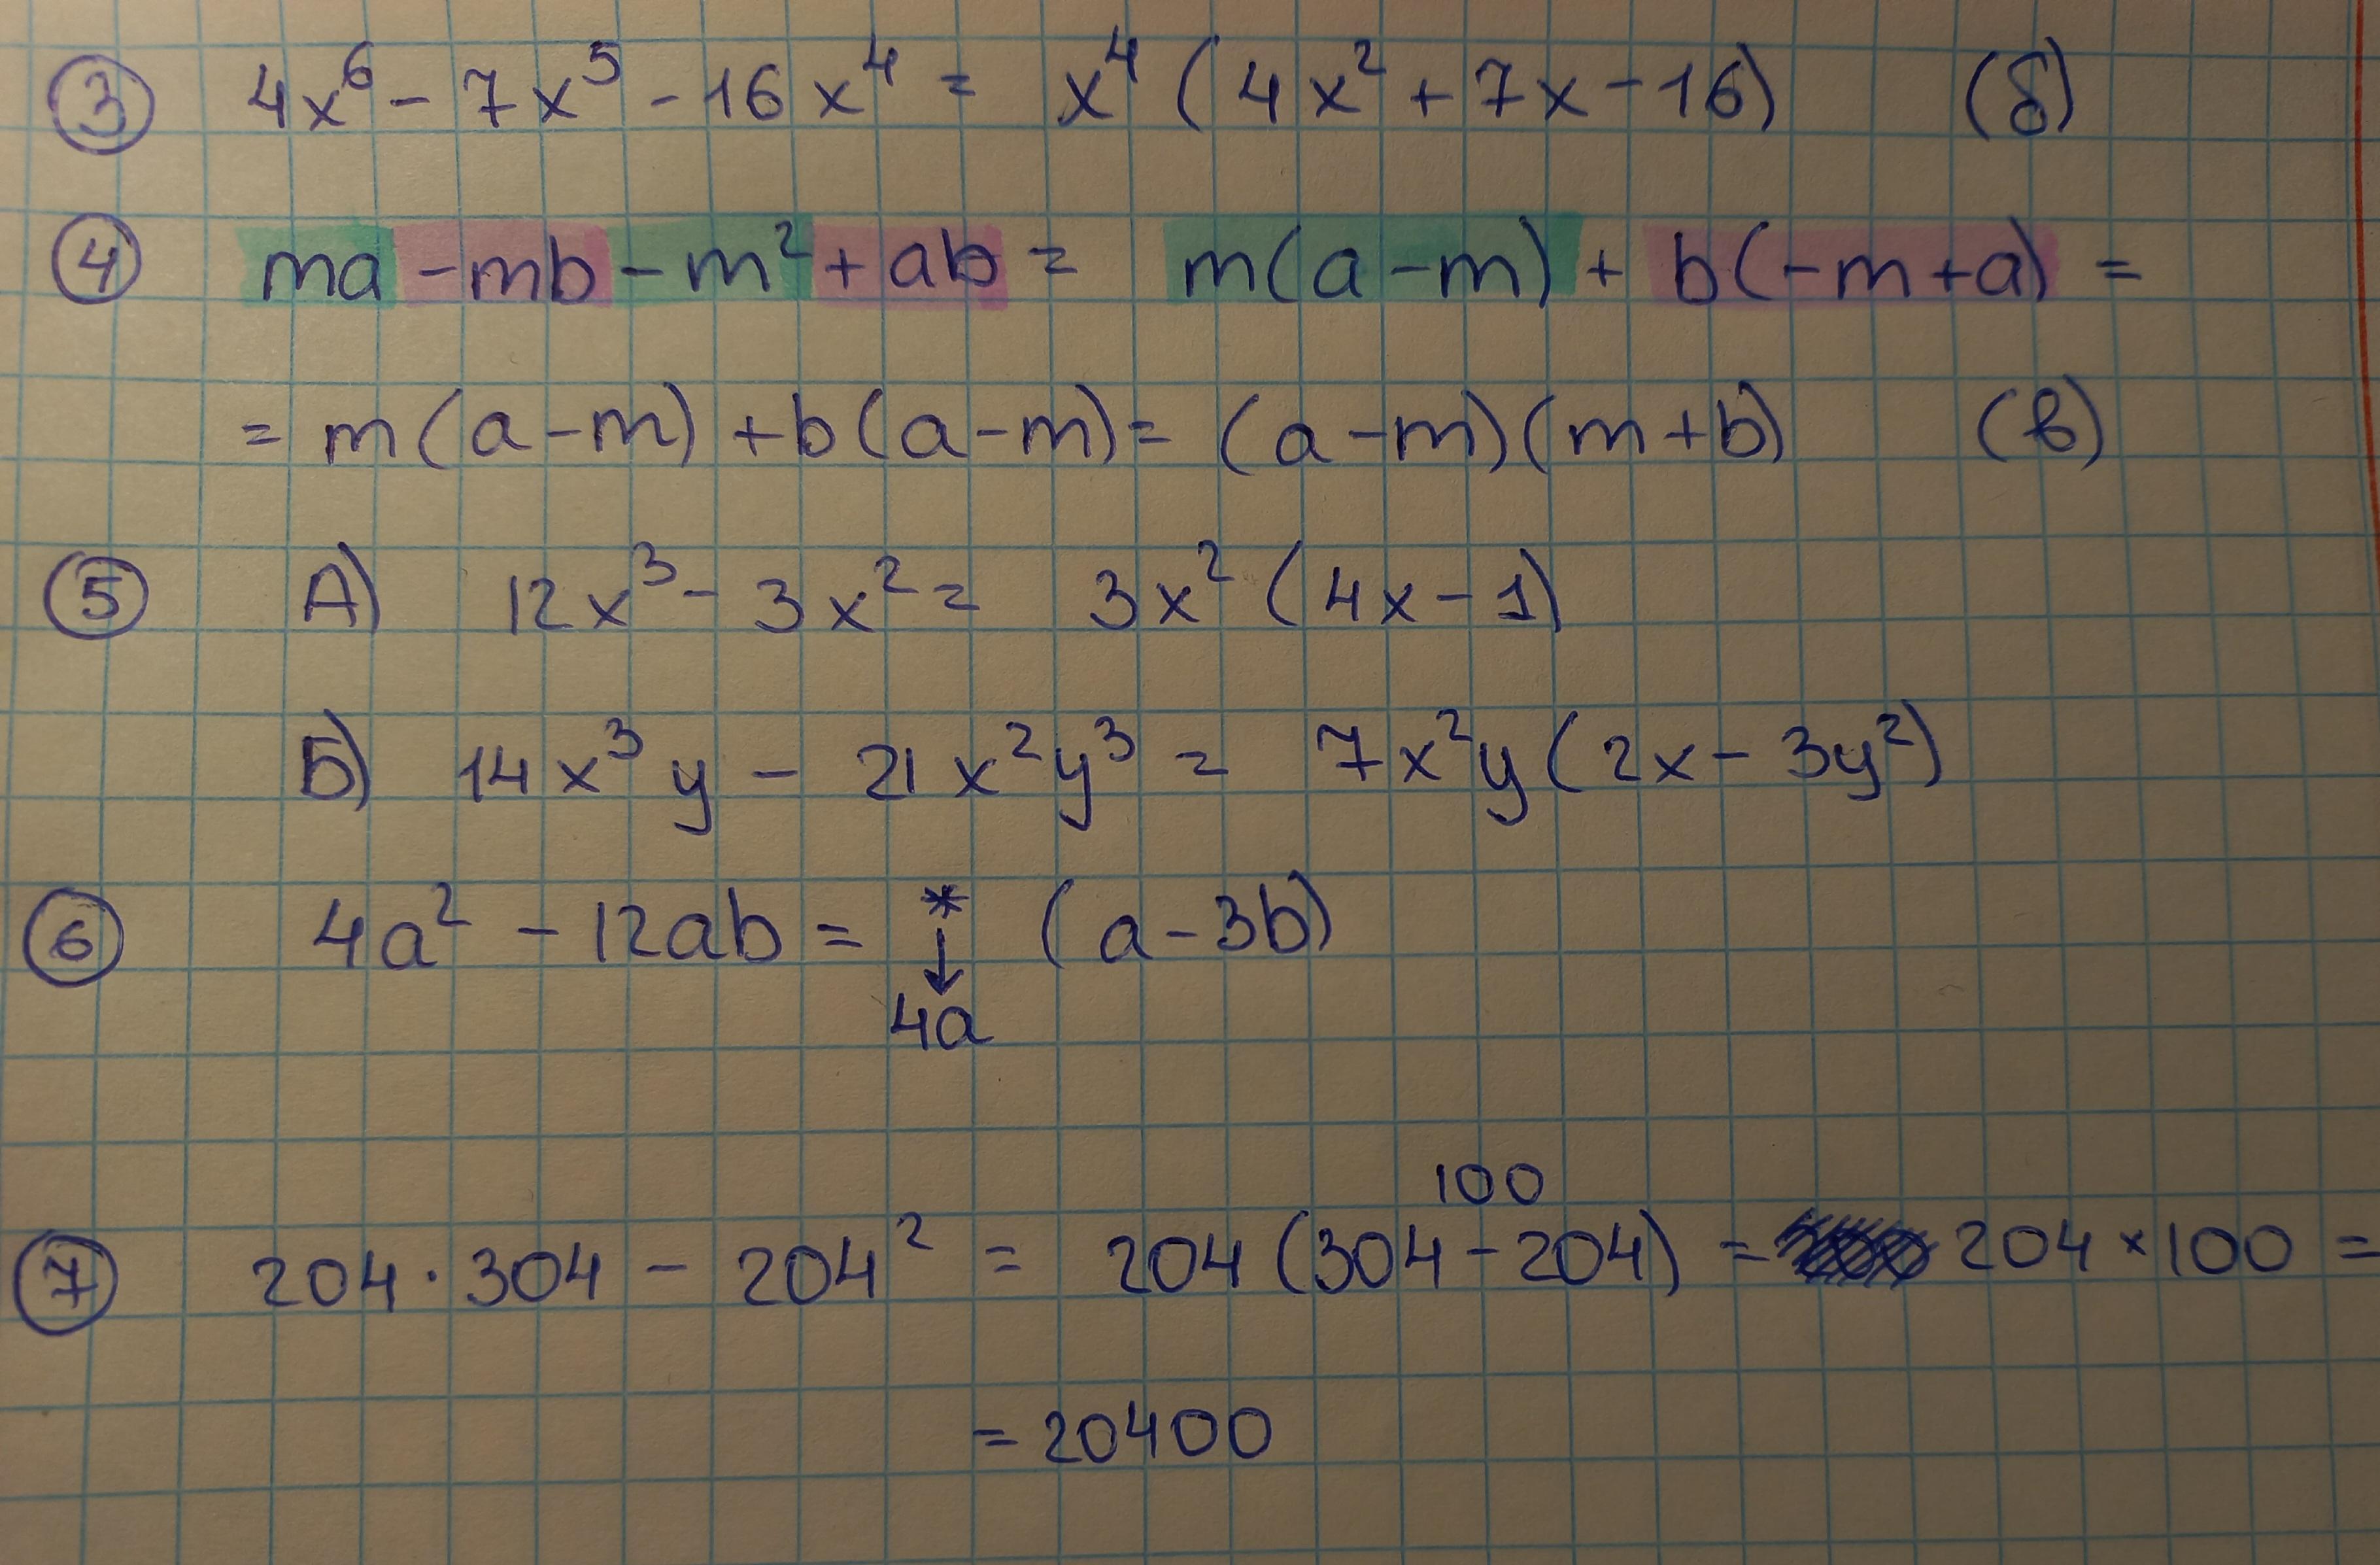 ③ 4x⁶ - 7x⁵ - 16x⁴ = x⁴ (4x² + 7x - 16) (б)
④ ma - mb - m² + ab = m(a - m) + b(-m + a) =
= m(a - m) + b(a - m) = (a - m)(m + b) (в)
⑤ А) 12x³ - 3x² = 3x² (4x - 1)
Б) 14x³y - 21x²y³ = 7x²y (2x - 3y²)
⑥ 4a² - 12ab = * (a - 3b)
↓
4a
100
⑦ 204 · 304 - 204² = 204 (304 - 204) = 204 × 100 =
= 20400